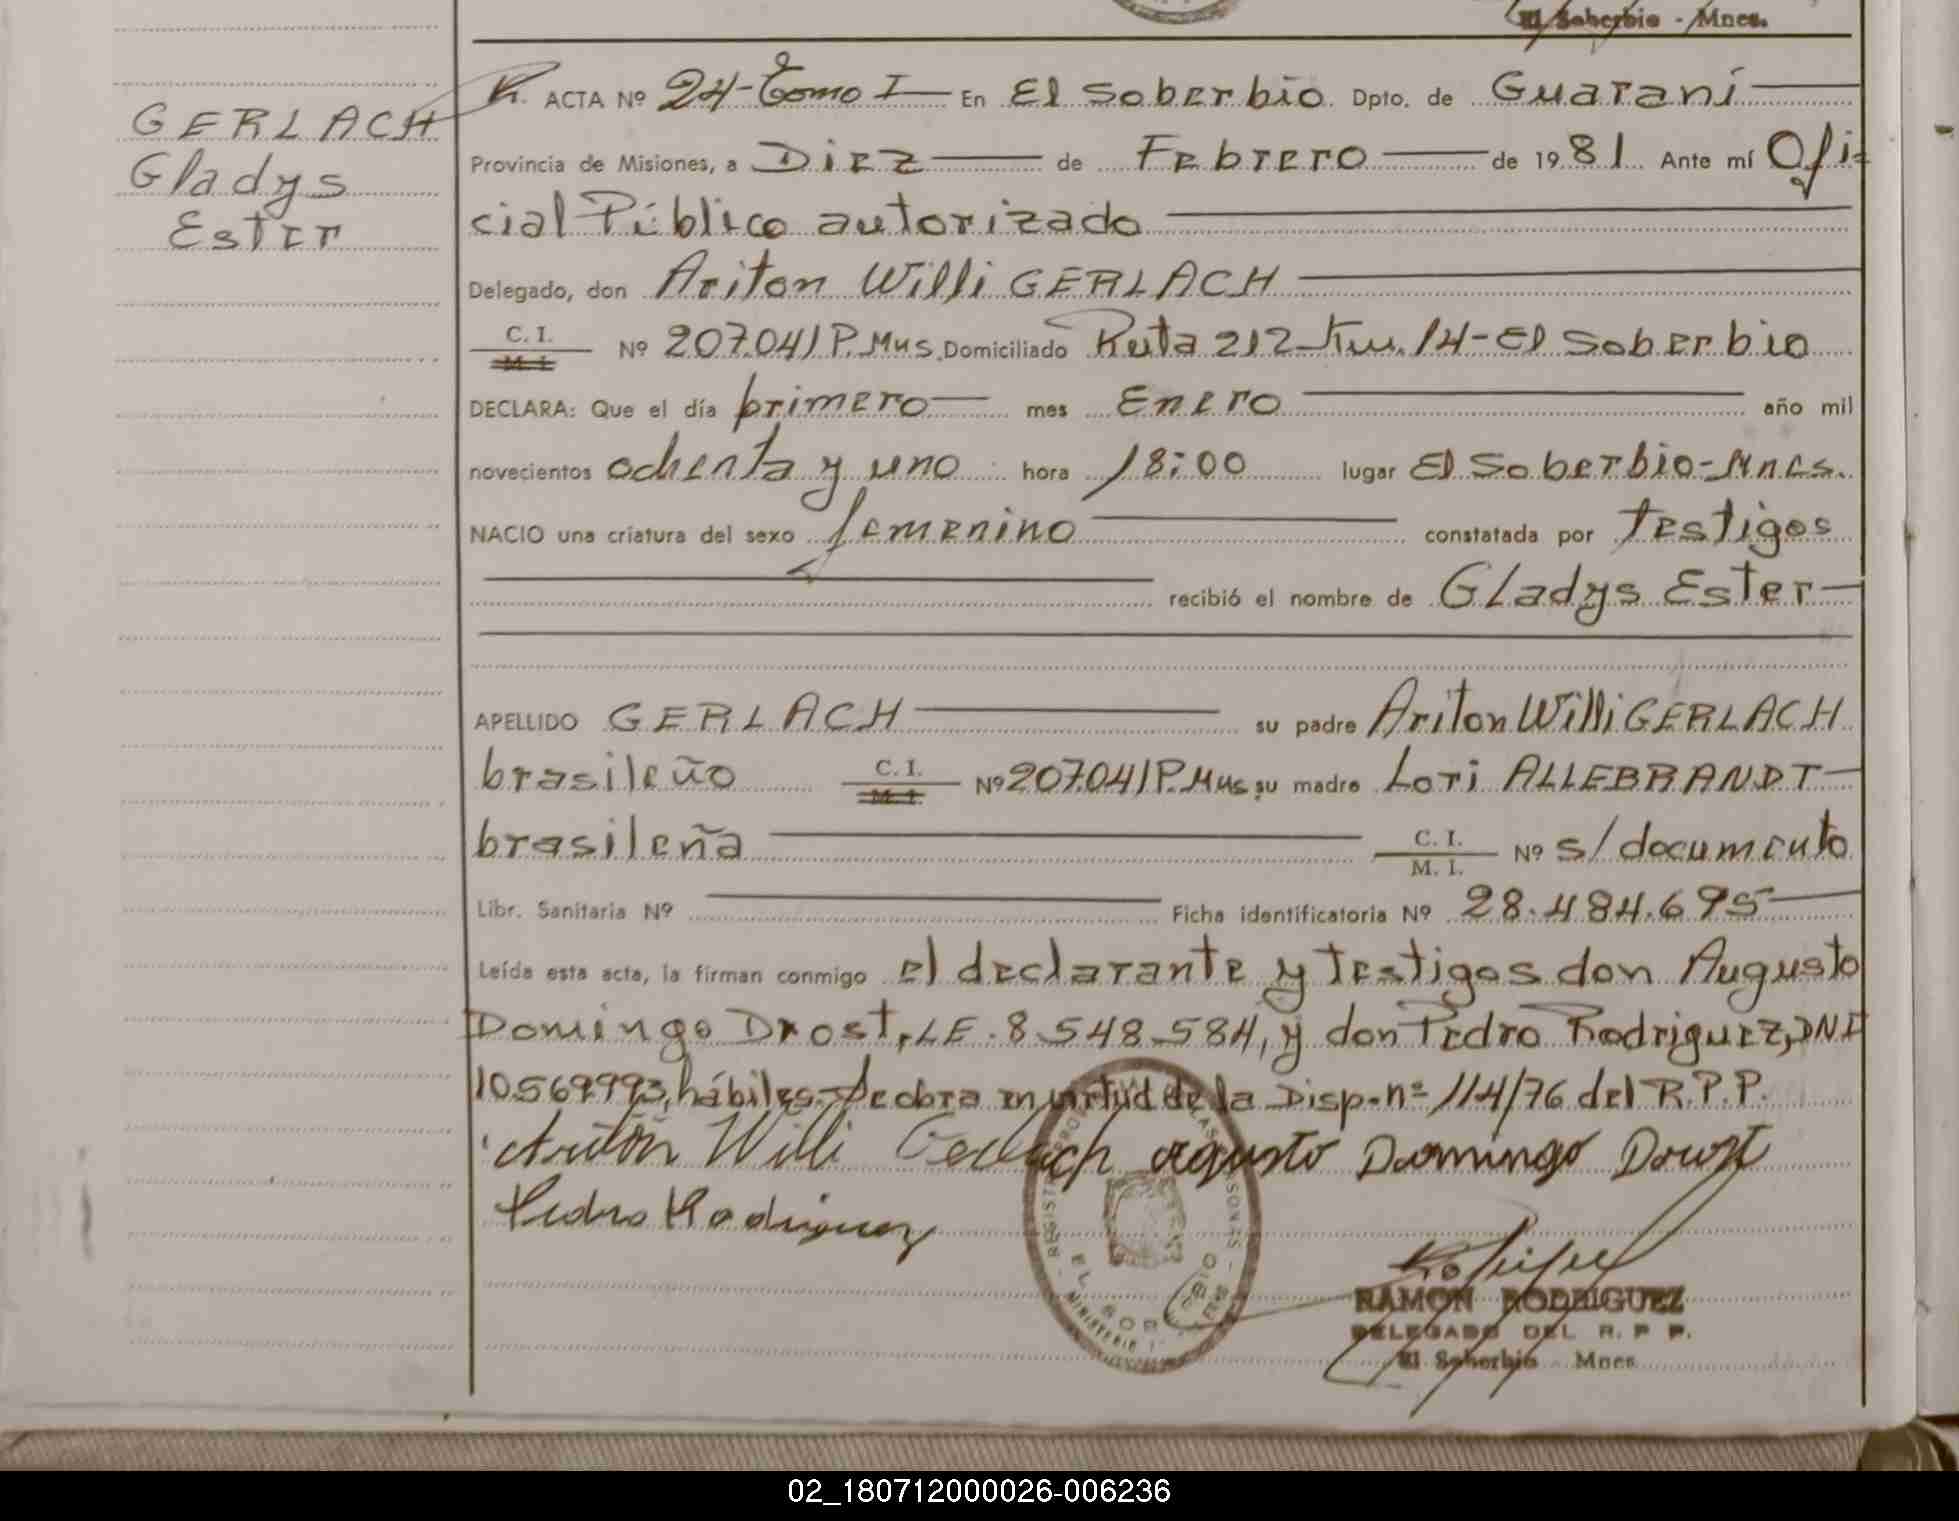 El Soberbio - Mnes.
GERLACH
Gladys
Ester
R. ACTA Nº 24-Tomo I En El Soberbio Dpto. de Guaraní
Provincia de Misiones, a Diez de Febrero de 1981 Ante mí Ofi-
cial Público autorizado
Delegado, don Ariton Willi GERLACH
C. I.
M. I.
Nº 207.041 P. Mns. Domiciliado Ruta 212-Km. 14-El Soberbio
DECLARA: Que el día primero mes Enero año mil
novecientos ochenta y uno hora 18:00 lugar El Soberbio-Mnes.
NACIO una criatura del sexo femenino constatada por testigos
recibió el nombre de Gladys Ester
APELLIDO GERLACH su padre Ariton Willi GERLACH
brasileño C. I. M. I. Nº 207.041 P. Mns. su madre Lori ALLEBRANDT
brasileña C. I. M. I. Nº s/documento
Libr. Sanitaria Nº Ficha identificatoria Nº 28.484.695
Leída esta acta, la firman conmigo el declarante y testigos don Augusto
Domingo Drost, LE. 8.548.584, y don Pedro Rodriguez, DNI
10.569993, hábiles. Se obra en virtud de la Disp. nº 114/76 del R.P.P.
Ariton Willi Gerlach agusto Domingo Drost
Pedro Rodriguez
RAMON RODRIGUEZ
DELEGADO DEL R. P. P.
El Soberbio Mnes.
02_180712000026-006236